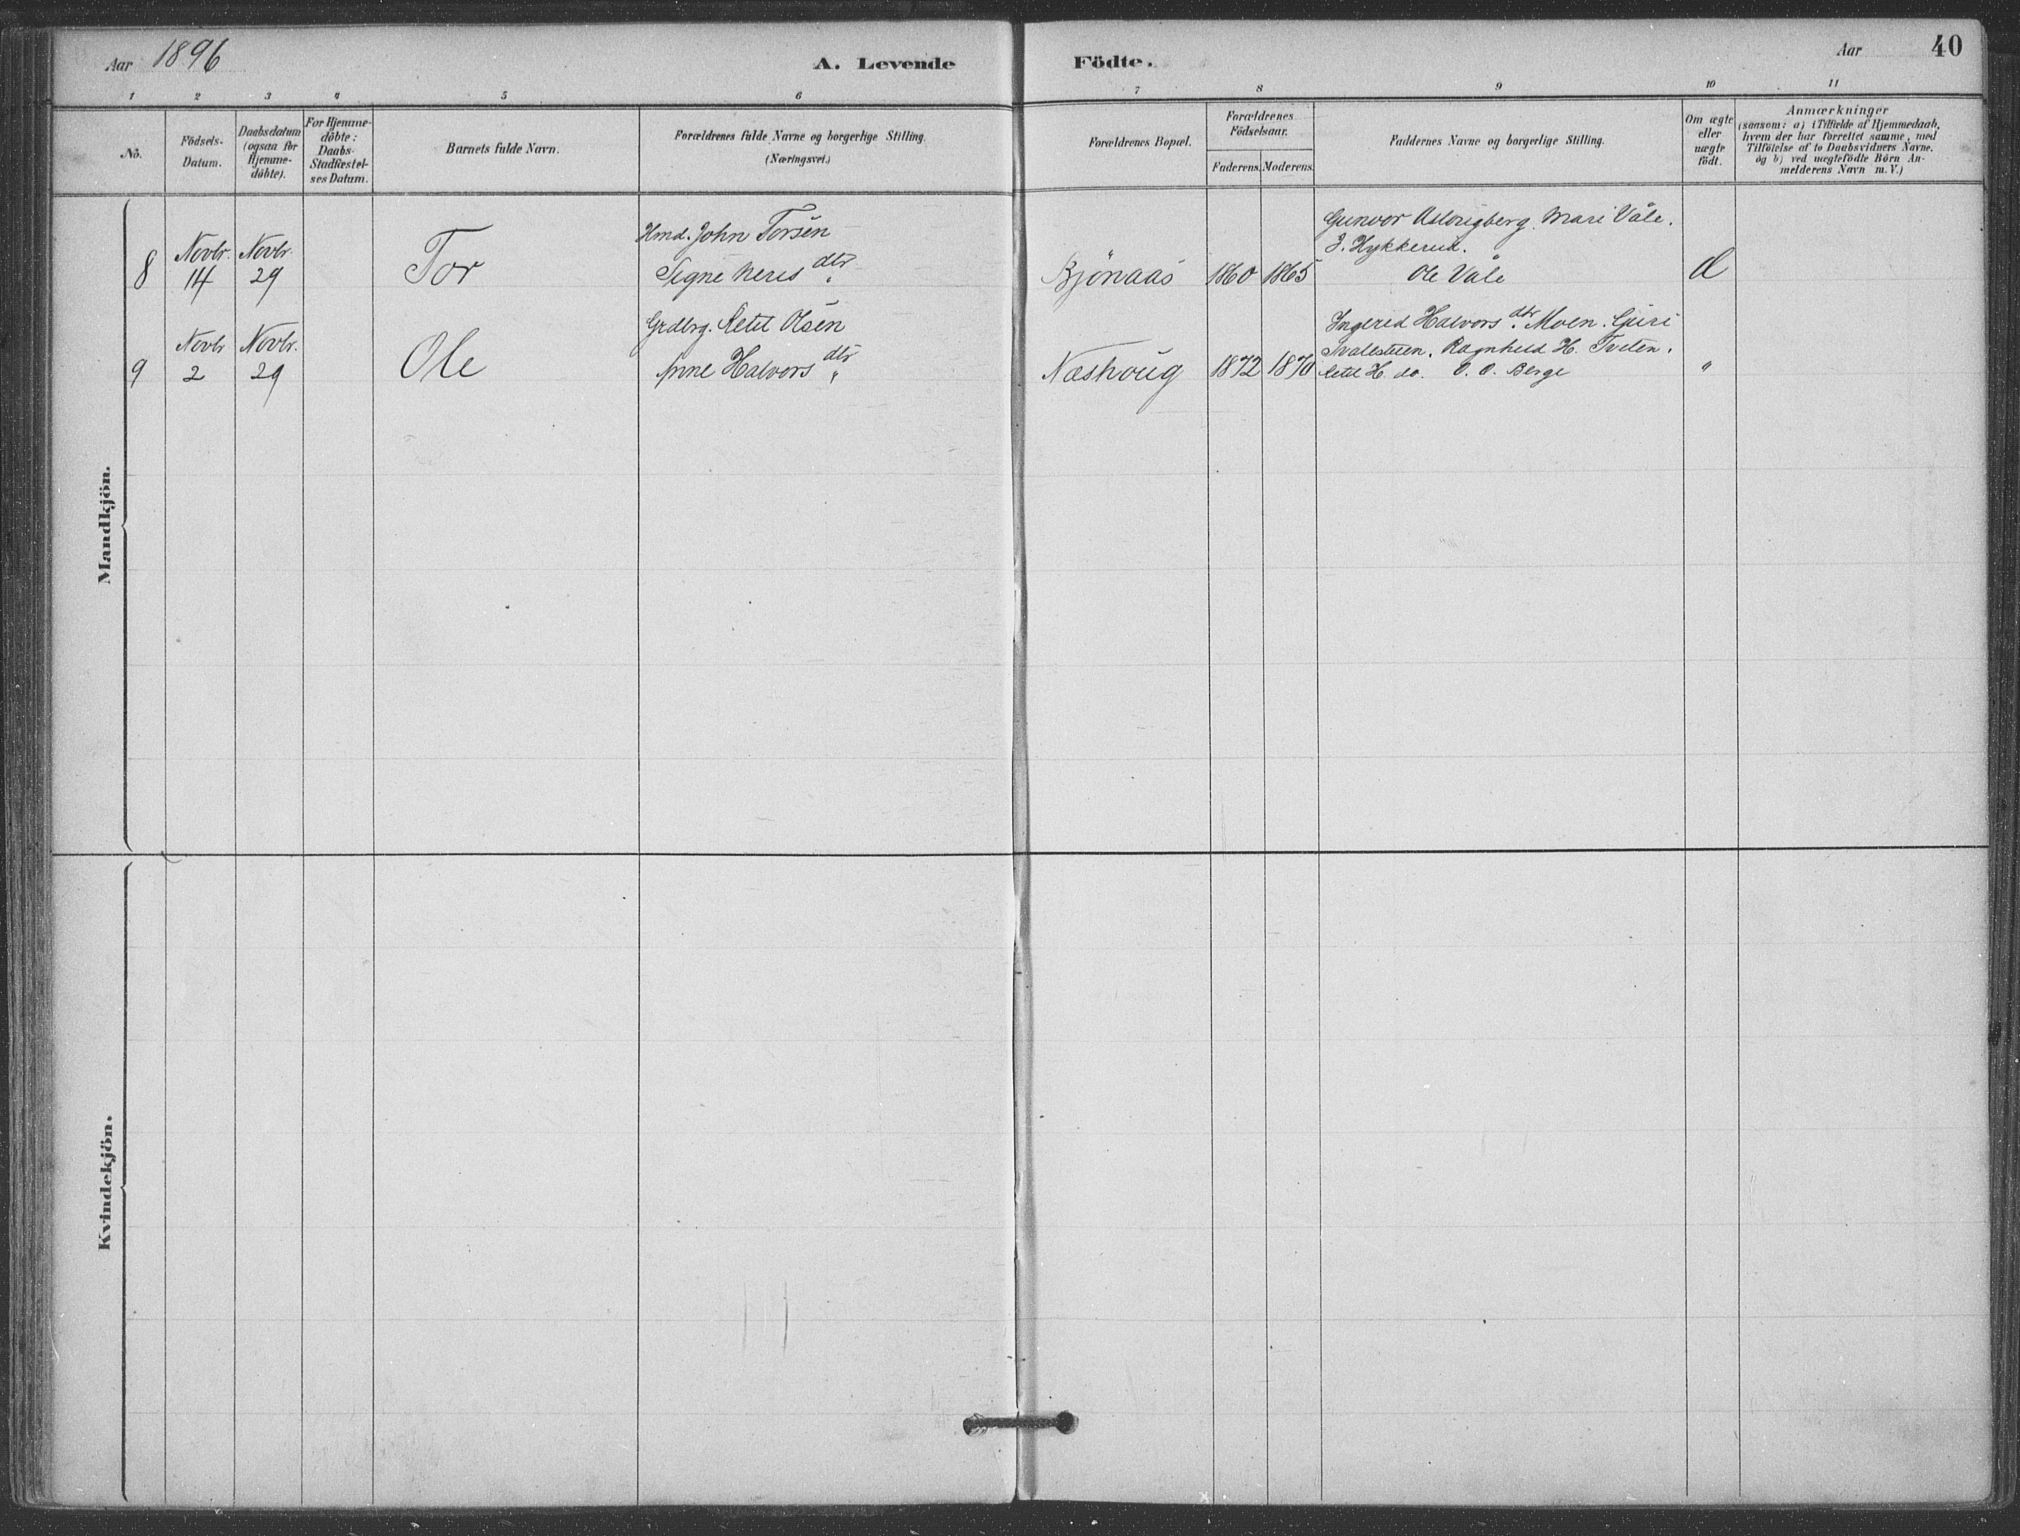 Aar 1896
A. Levende Födte.
Aar
40
1 2 3 4 5 6 7 8 9 10 11
No.
Födsels-
Datum.
Daabsdatum
(ogsaa for
Hjemme-
döbte).
For Hjemme-
döbte:
Daabs-
Stadfæstel-
ses Datum.
Barnets fulde Navn.
Forældrenes fulde Navne og borgerlige Stilling.
(Næringsvei.)
Forældrenes Bopæl.
Forældrenes
Födselsaar.
Faderens. Moderens.
Faddernes Navne og borgerlige Stilling.
Om ægte
eller
uægte
födt.
Anmærkninger
(saasom: a) i Tilfælde af Hjemmedaab,
hvem der har forrettet samme, med
Tilföielse af to Daabsvidners Navne.
og b) ved uægtefödte Börn An-
melderens Navn m. V.)
Mandkjön.
8
Novbr.
14
Novbr.
29
Tor
Hmd. John Torsen
Signe Neris dtr
Bjönaas
1860 1865
Gunvor Aslougberg. Mari Våle.
J. Hykkerud.
Ole Våle
9
Novbr
2
Novbr.
29
Ole
Grdbrg. Ketil Olsen
Anne Halvors dtr
Næshoug
1872 1870
Ingered Halvors dtr. Moen. Guri
Svalestuen. Ragnheid H. Tveten.
Ketil H. do. O. O. Berge
"
Kvindekjön.